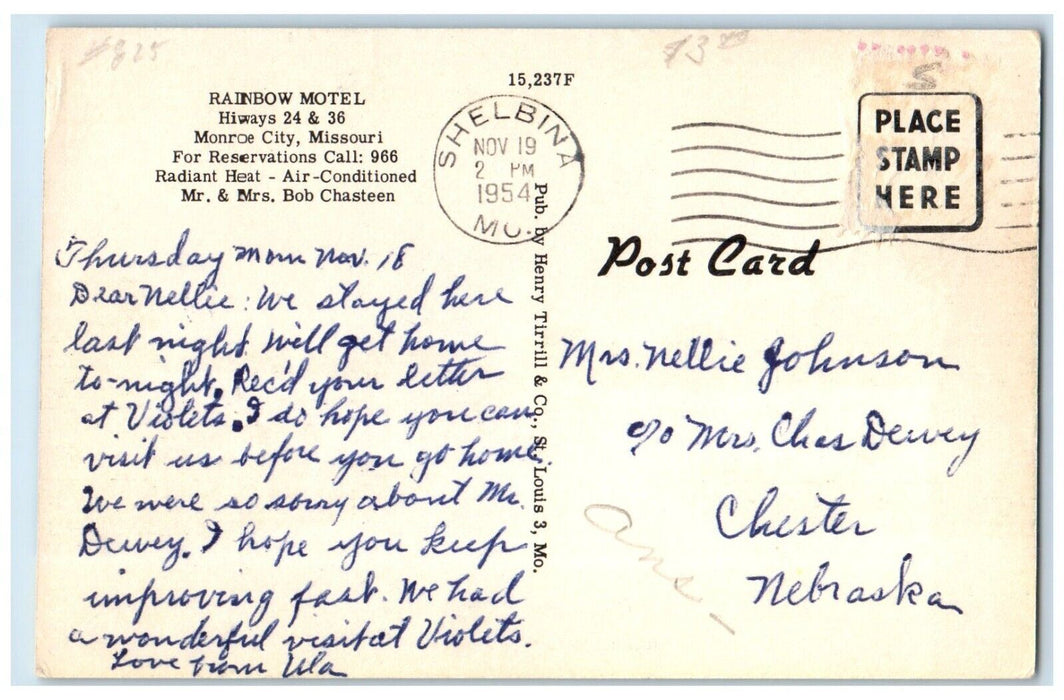 #825
$3.00
S
15,237F
RAINBOW MOTEL
Hiways 24 & 36
Monroe City, Missouri
For Reservations Call: 966
Radiant Heat - Air-Conditioned
Mr. & Mrs. Bob Chasteen
SHELBINA
NOV 19
2 PM
1954
MO.
PLACE
STAMP
HERE
Pub. by Henry Tirrill & Co., St. Louis 3, Mo.
Post Card
Thursday Morn Nov. 18
Dear Nellie: We stayed here
last night. Will get home
to-night. Rec'd your letter
at Violets. I do hope you can
visit us before you go home.
We were so sorry about Mr.
Dewey. I hope you keep
improving fast. We had
a wonderful visit at Violets.
Love from Ula
Mrs. Nellie Johnson
c/o Mrs. Chas Dewey
Chester
Nebraska
Ans -